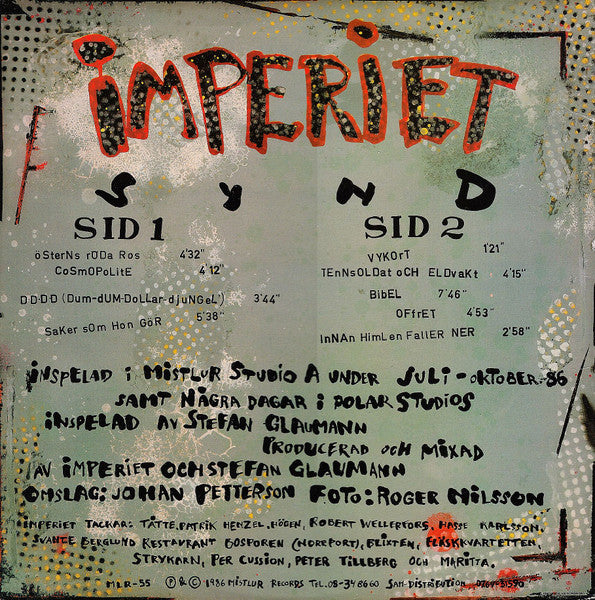 iMPERiET
SYND
SID 1
öSterNs rÖDa Ros 4'32"
CoSmOPoLitE 4'12"
D-D-D-D (Dum-dUM-DoLLar-djuNGeL') 3'44"
SaKer sOm Hon GöR 5'38"
SID 2
VYKOrT 1'21"
TEnNsOLDat oCH ELDvaKt 4'15"
BibEL 7'46"
OFfrET 4'53"
InNAn HimLen FallER NER 2'58"
iNSPELAD i MiSTLUR STUDiO A UNDER JULi - OKTOBER-86
SAMT NÅGRA DAGAR i POLAR STUDiOS
iNSPELAD AV STEFAN GLAUMANN
PRODUCERAD OCH MiXAD
AV iMPERiET OCH STEFAN GLAUMANN
OMSLAG: JOHAN PETTERSON FOTO: ROGER NiLSSON
iMPERiET TACKAR: TÅTTE, PATRiK HENZEL, HÖGEN, ROBERT WELLERFORS, HASSE KARLSSON,
SVANTE BERGLUND RESTAURANT BOSPOREN (NOREPORT), BLiXTEN, FLÄSKKVARTETTEN,
STRYKARN, PER CUSSiON, PETER TiLLBERG OCH MARiTTA.
MLR-55 ℗ & © 1986 MiSTLUR RECORDS TEL. 08-34 86 60 SAM-DiSTRiBUTiON 0764-31590